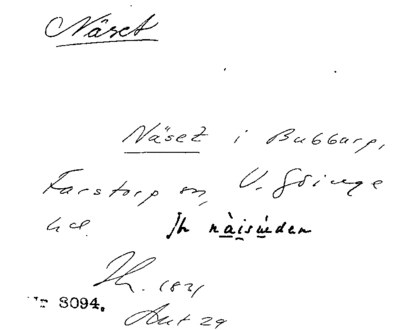 Näset
Näset i Bubbarp,
Farstorp sn, V. Göinge
hd. Jh nàisẁden
Jh. 1821
Ant 29
3094.